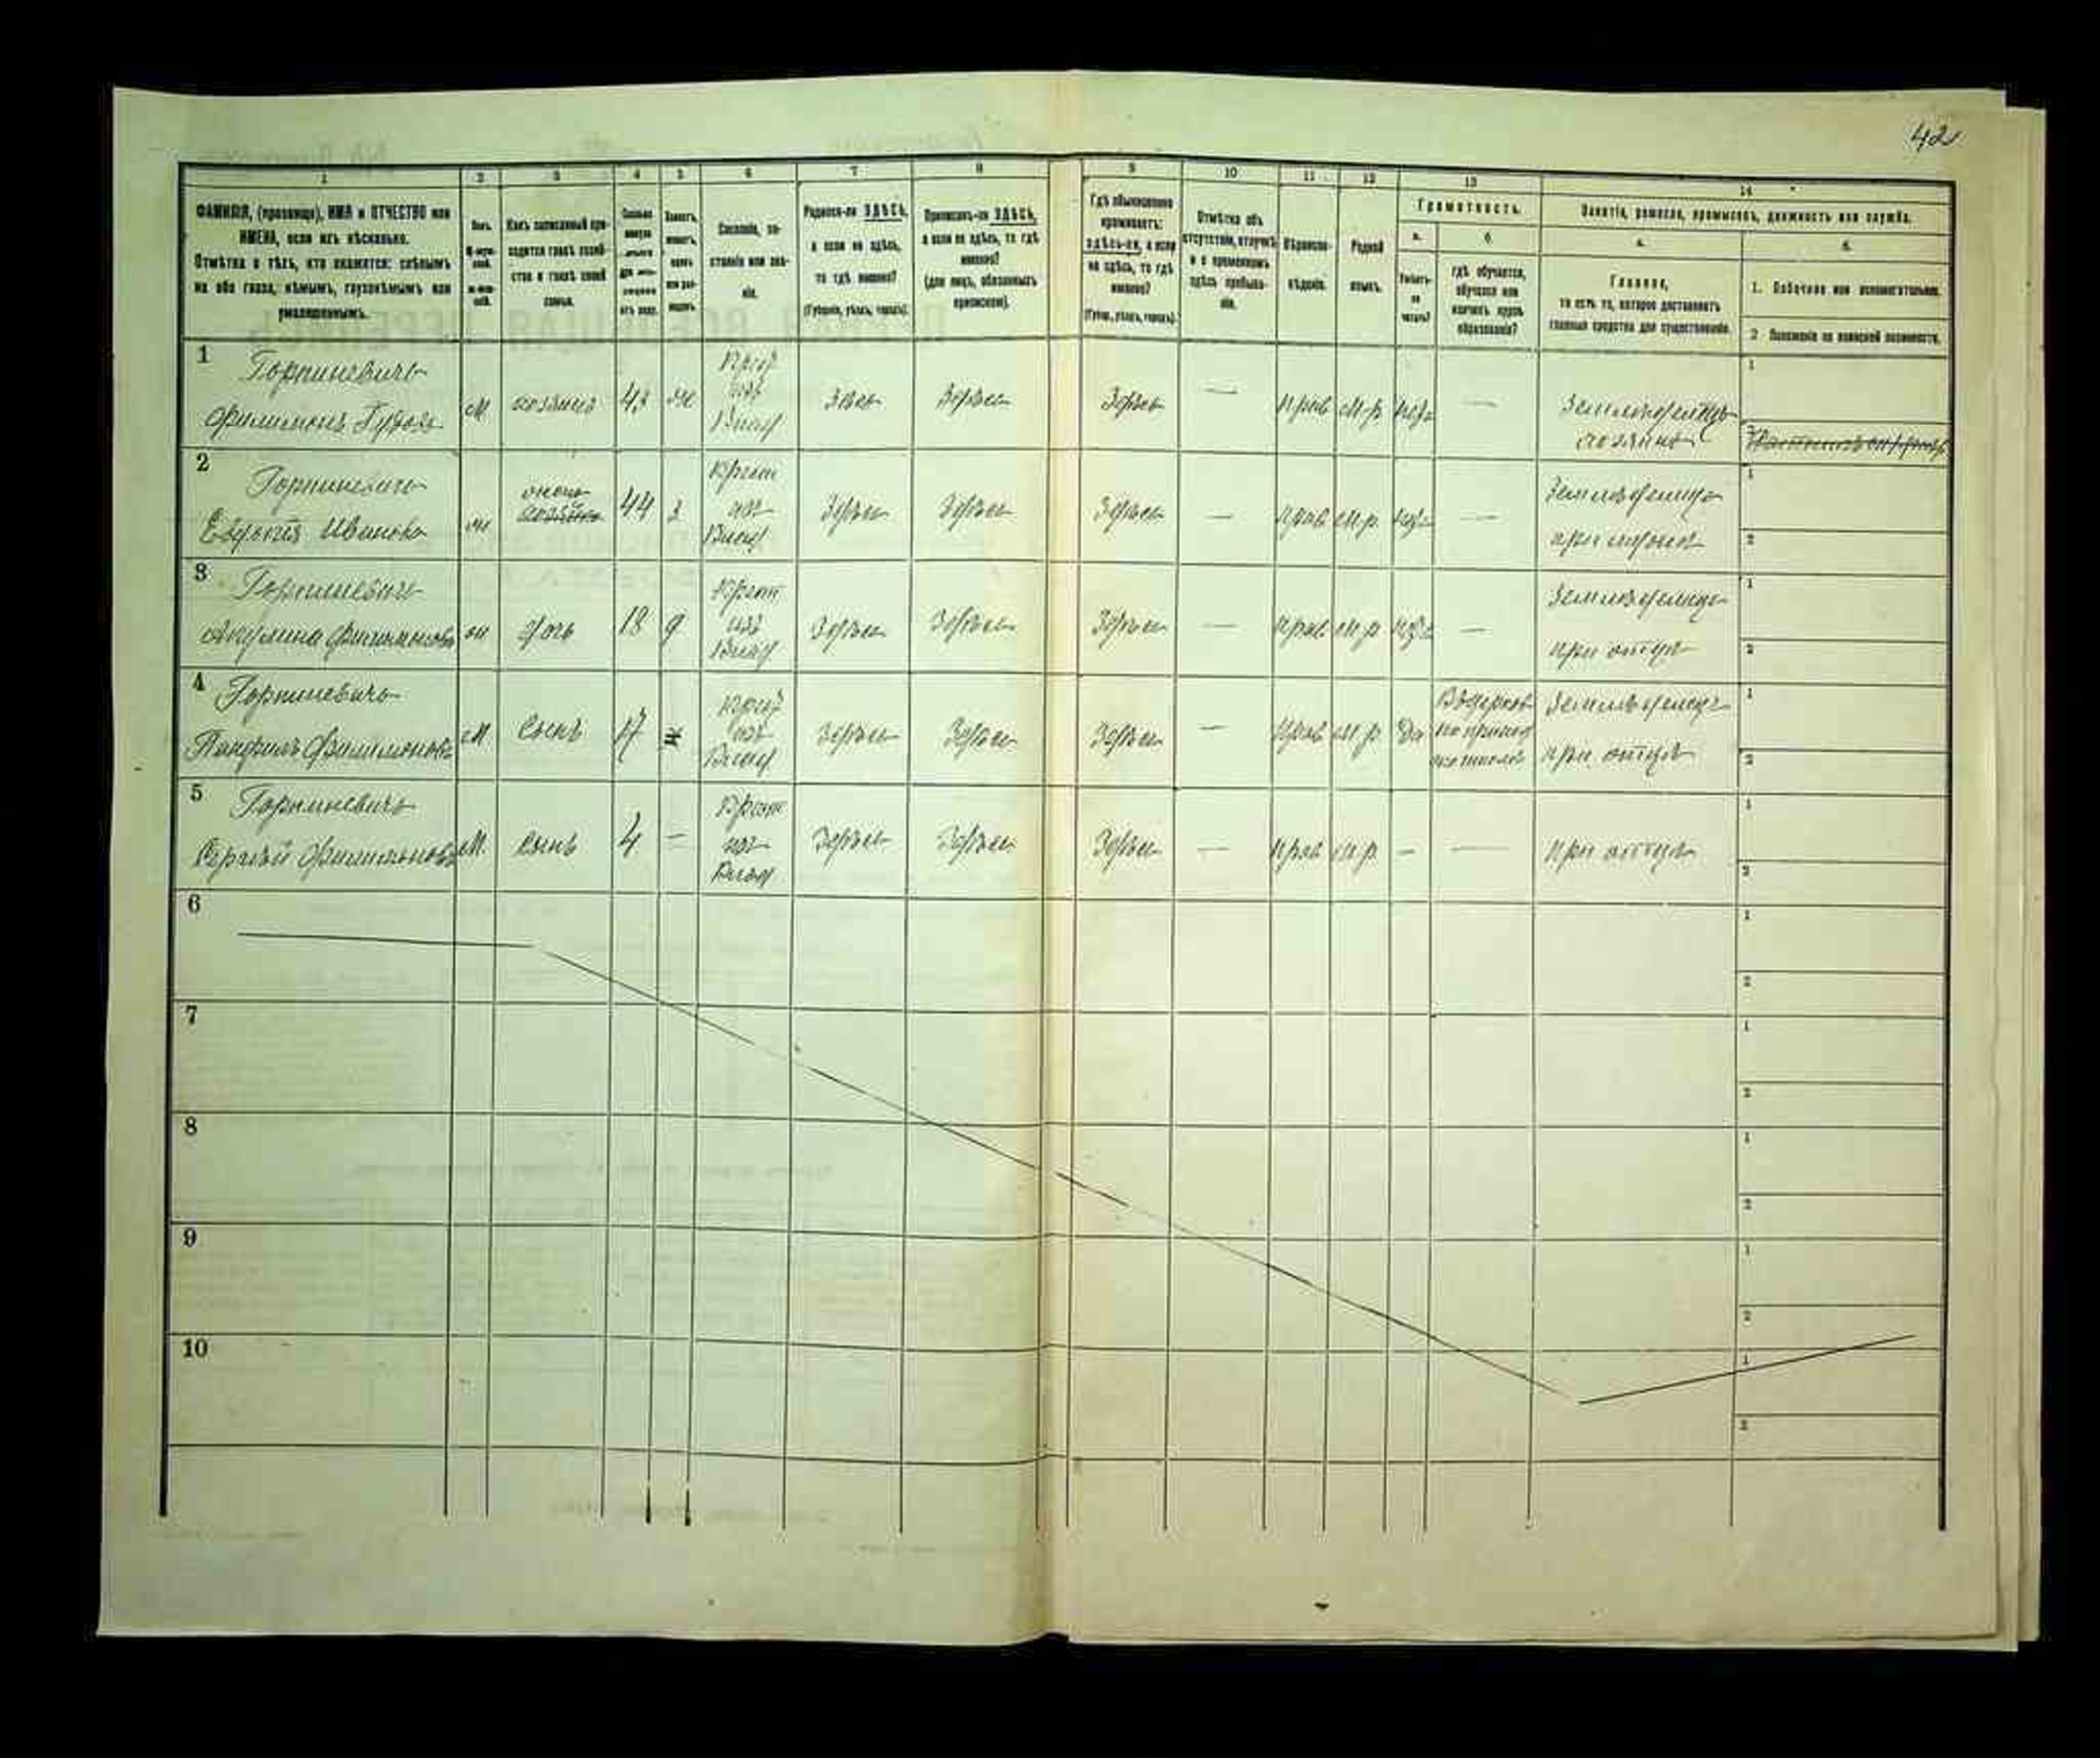 42
1 2 3 4 5 6 7 8 9 10 11 12 13 14
ФАМИЛІЯ, (прозвище), ИМЯ и ОТЧЕСТВО или
ИМЕНА, если ихъ нѣсколько.
Отмѣтка о тѣхъ, кто окажется: слѣпымъ
на оба глаза, нѣмымъ, глухонѣмымъ или
умалишеннымъ.
Полъ.
М-муж-
ской.
ж-жен-
скій.
Какъ записанный при-
ходится главѣ хозяй-
ства и главѣ своей
семьи.
Сколько
минуло
лѣтъ
отъ роду.
Холостъ,
женатъ,
вдовъ
или раз-
веденъ.
Сословіе, со-
стояніе или зва-
ніе.
Родился-ли ЗДѢСЬ,
а если не здѣсь,
то гдѣ именно?
(Губернія, уѣздъ, городъ).
Приписанъ-ли ЗДѢСЬ,
а если не здѣсь, то гдѣ
именно?
(для лицъ, обязанныхъ
припискою).
Гдѣ обыкновенно
проживаетъ:
здѣсь-ли, а если
не здѣсь, то гдѣ
именно?
(Губер., уѣздъ, городъ).
Отмѣтка объ
отсутствіи, отлучкѣ
и о временномъ
здѣсь пребыва-
ніи.
Вѣроиспо-
вѣданіе.
Родной
языкъ.
Грамотность.
а.
Умѣетъ-
ли
читать?
б.
гдѣ обучается,
обучался или
кончилъ курсъ
образованія?
Занятіе, ремесло, промыселъ, должность или служба.
а.
Главное,
то есть то, которое доставляетъ
главныя средства для существованія.
б.
1. Побочное или вспомогательное.
2 Положеніе по воинской повинности.
1 Горпиневичъ
Филимонъ М хозяинъ 43 ж Здѣсь Здѣсь Здѣсь — прав м-р — Земледѣлецъ
хозяинъ
2 Горпиневичъ
Евдокія Иванова ж жена 44 з Крест из Влад Здѣсь Здѣсь Здѣсь — прав м.р. — Земледѣлица
при мужѣ
3 Горпиневичъ
Акулина Филимонова ж дочь 18 д Крест из Влад Здѣсь Здѣсь Здѣсь — прав м.р — Земледѣлица
при отцѣ
4 Горпиневичъ
Панфилъ Филимоновъ М сынъ 17 из Влад Здѣсь Здѣсь Здѣсь — прав м.р да Земледѣлецъ
при отцѣ
5 Горпиневичъ
Сергѣй Филимоновъ М. сынъ 4 — Крест из Влад Здѣсь Здѣсь Здѣсь — прав м.р. — — при отцѣ
6
7
8
9
10